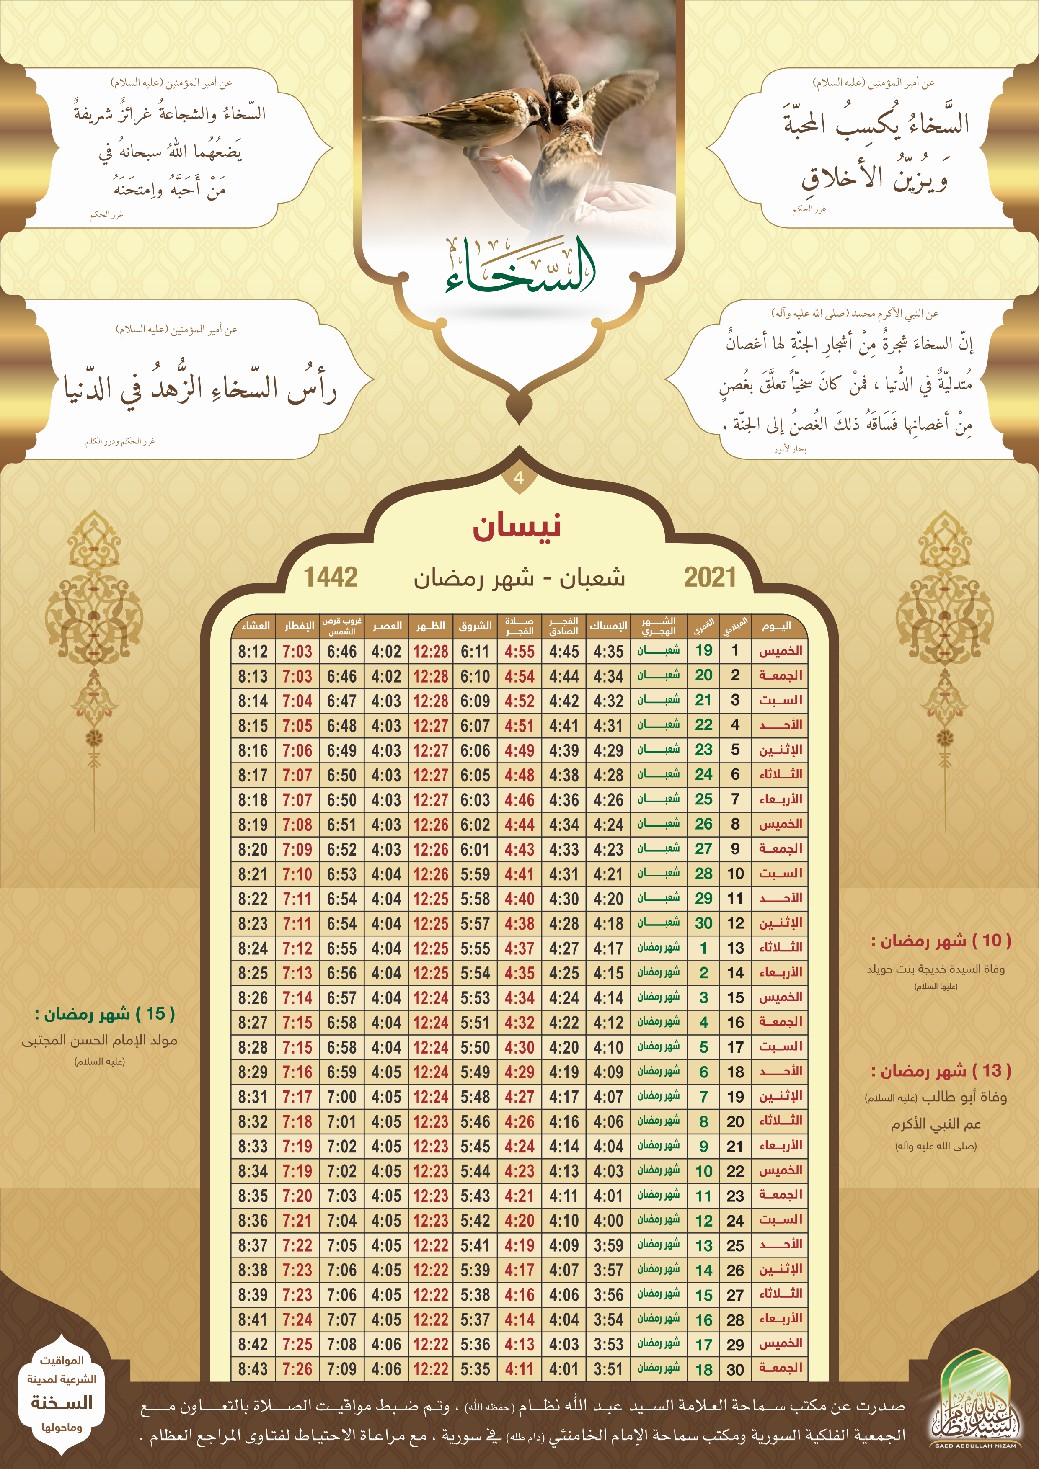 عن أمير المؤمنين (عليه السلام)
السَّخاءُ يُكسِبُ المحبّةَ
وَيُزيّنُ الأخلاقِ
غرر الحكم
عن أمير المؤمنين (عليه السلام)
السّخاءُ والشجاعةُ غرائزٌ شريفةٌ
يَضعُهُما اللهُ سبحانهُ في
مَنْ أَحَبَّهُ وامتحَنَهُ
غرر الحكم
السّخاء
عن النبي الأكرم محمد (صلى الله عليه وآله)
إنّ السخاءَ شجرةٌ مِنْ أشجارِ الجنّةِ لها أغصانٌ
مُتدليّةٌ في الدُّنيا ، فمَنْ كانَ سخيّاً تعلَّقَ بغُصنٍ
مِنْ أغصانِها فَسَاقَهُ ذلكَ الغُصنُ إلى الجنّة .
بحار الأنور
عن أمير المؤمنين (عليه السلام)
رأسُ السّخاءِ الزُّهدُ في الدّنيا
غرر الحكم ودرر الكلم
4
نيسان
2021 شعبان - شهر رمضان 1442
اليـوم الميلادي القمري الشـهر الهجري الإمساك الفجـر الصادق صـلاة الفجـر الشروق الظـهر العصـر غروب قرص الشمس الإفطار العشاء
الخميس 1 19 شعبــان 4:35 4:45 4:55 6:11 12:28 4:02 6:46 7:03 8:12
الجمعـة 2 20 شعبــان 4:34 4:44 4:54 6:10 12:28 4:02 6:46 7:03 8:13
السـبت 3 21 شعبــان 4:32 4:42 4:52 6:09 12:28 4:03 6:47 7:04 8:14
الأحــد 4 22 شعبــان 4:31 4:41 4:51 6:07 12:27 4:03 6:48 7:05 8:15
الإثنـين 5 23 شعبــان 4:29 4:39 4:49 6:06 12:27 4:03 6:49 7:06 8:16
الثـلاثاء 6 24 شعبــان 4:28 4:38 4:48 6:05 12:27 4:03 6:50 7:07 8:17
الأربعـاء 7 25 شعبــان 4:26 4:36 4:46 6:03 12:27 4:03 6:50 7:07 8:18
الخميس 8 26 شعبــان 4:24 4:34 4:44 6:02 12:26 4:03 6:51 7:08 8:19
الجمعـة 9 27 شعبــان 4:23 4:33 4:43 6:01 12:26 4:03 6:52 7:09 8:20
السـبت 10 28 شعبــان 4:21 4:31 4:41 5:59 12:26 4:04 6:53 7:10 8:21
الأحــد 11 29 شعبــان 4:20 4:30 4:40 5:58 12:25 4:04 6:54 7:11 8:22
الإثنـين 12 30 شعبــان 4:18 4:28 4:38 5:57 12:25 4:04 6:54 7:11 8:23
الثـلاثاء 13 1 شهر رمضان 4:17 4:27 4:37 5:55 12:25 4:04 6:55 7:12 8:24
الأربعـاء 14 2 شهر رمضان 4:15 4:25 4:35 5:54 12:25 4:04 6:56 7:13 8:25
الخميس 15 3 شهر رمضان 4:14 4:24 4:34 5:53 12:24 4:04 6:57 7:14 8:26
الجمعـة 16 4 شهر رمضان 4:12 4:22 4:32 5:51 12:24 4:04 6:58 7:15 8:27
السـبت 17 5 شهر رمضان 4:10 4:20 4:30 5:50 12:24 4:04 6:58 7:15 8:28
الأحــد 18 6 شهر رمضان 4:09 4:19 4:29 5:49 12:24 4:05 6:59 7:16 8:29
الإثنـين 19 7 شهر رمضان 4:07 4:17 4:27 5:48 12:24 4:05 7:00 7:17 8:31
الثـلاثاء 20 8 شهر رمضان 4:06 4:16 4:26 5:46 12:23 4:05 7:01 7:18 8:32
الأربعـاء 21 9 شهر رمضان 4:04 4:14 4:24 5:45 12:23 4:05 7:02 7:19 8:33
الخميس 22 10 شهر رمضان 4:03 4:13 4:23 5:44 12:23 4:05 7:02 7:19 8:34
الجمعـة 23 11 شهر رمضان 4:01 4:11 4:21 5:43 12:23 4:05 7:03 7:20 8:35
السـبت 24 12 شهر رمضان 4:00 4:10 4:20 5:42 12:23 4:05 7:04 7:21 8:36
الأحــد 25 13 شهر رمضان 3:59 4:09 4:19 5:41 12:22 4:05 7:05 7:22 8:37
الإثنـين 26 14 شهر رمضان 3:57 4:07 4:17 5:39 12:22 4:05 7:06 7:23 8:38
الثـلاثاء 27 15 شهر رمضان 3:56 4:06 4:16 5:38 12:22 4:05 7:06 7:23 8:39
الأربعـاء 28 16 شهر رمضان 3:54 4:04 4:14 5:37 12:22 4:05 7:07 7:24 8:41
الخميس 29 17 شهر رمضان 3:53 4:03 4:13 5:36 12:22 4:06 7:08 7:25 8:42
الجمعـة 30 18 شهر رمضان 3:51 4:01 4:11 5:35 12:22 4:06 7:09 7:26 8:43
( 10 ) شهر رمضان :
وفاة السيدة خديجة بنت خويلد
(عليها السلام)
( 13 ) شهر رمضان :
وفاة أبو طالب (عليه السلام)
عم النبي الأكرم
(صلى الله عليه وآله)
( 15 ) شهر رمضان :
مولد الإمام الحسن المجتبى
(عليه السلام)
صدرت عن مكتب سماحة العلامة السيد عبد الله نظام (حفظه الله) ، وتم ضبط مواقيت الصلاة بالتعاون مع
الجمعية الفلكية السورية ومكتب سماحة الإمام الخامنئي (دام ظله) في سورية ، مع مراعاة الاحتياط لفتاوى المراجع العظام .
المواقيت
الشرعية لمدينة
السخنة
وماحولها
السيد عبدالله نظام
SAED ABDULLAH NIZAM